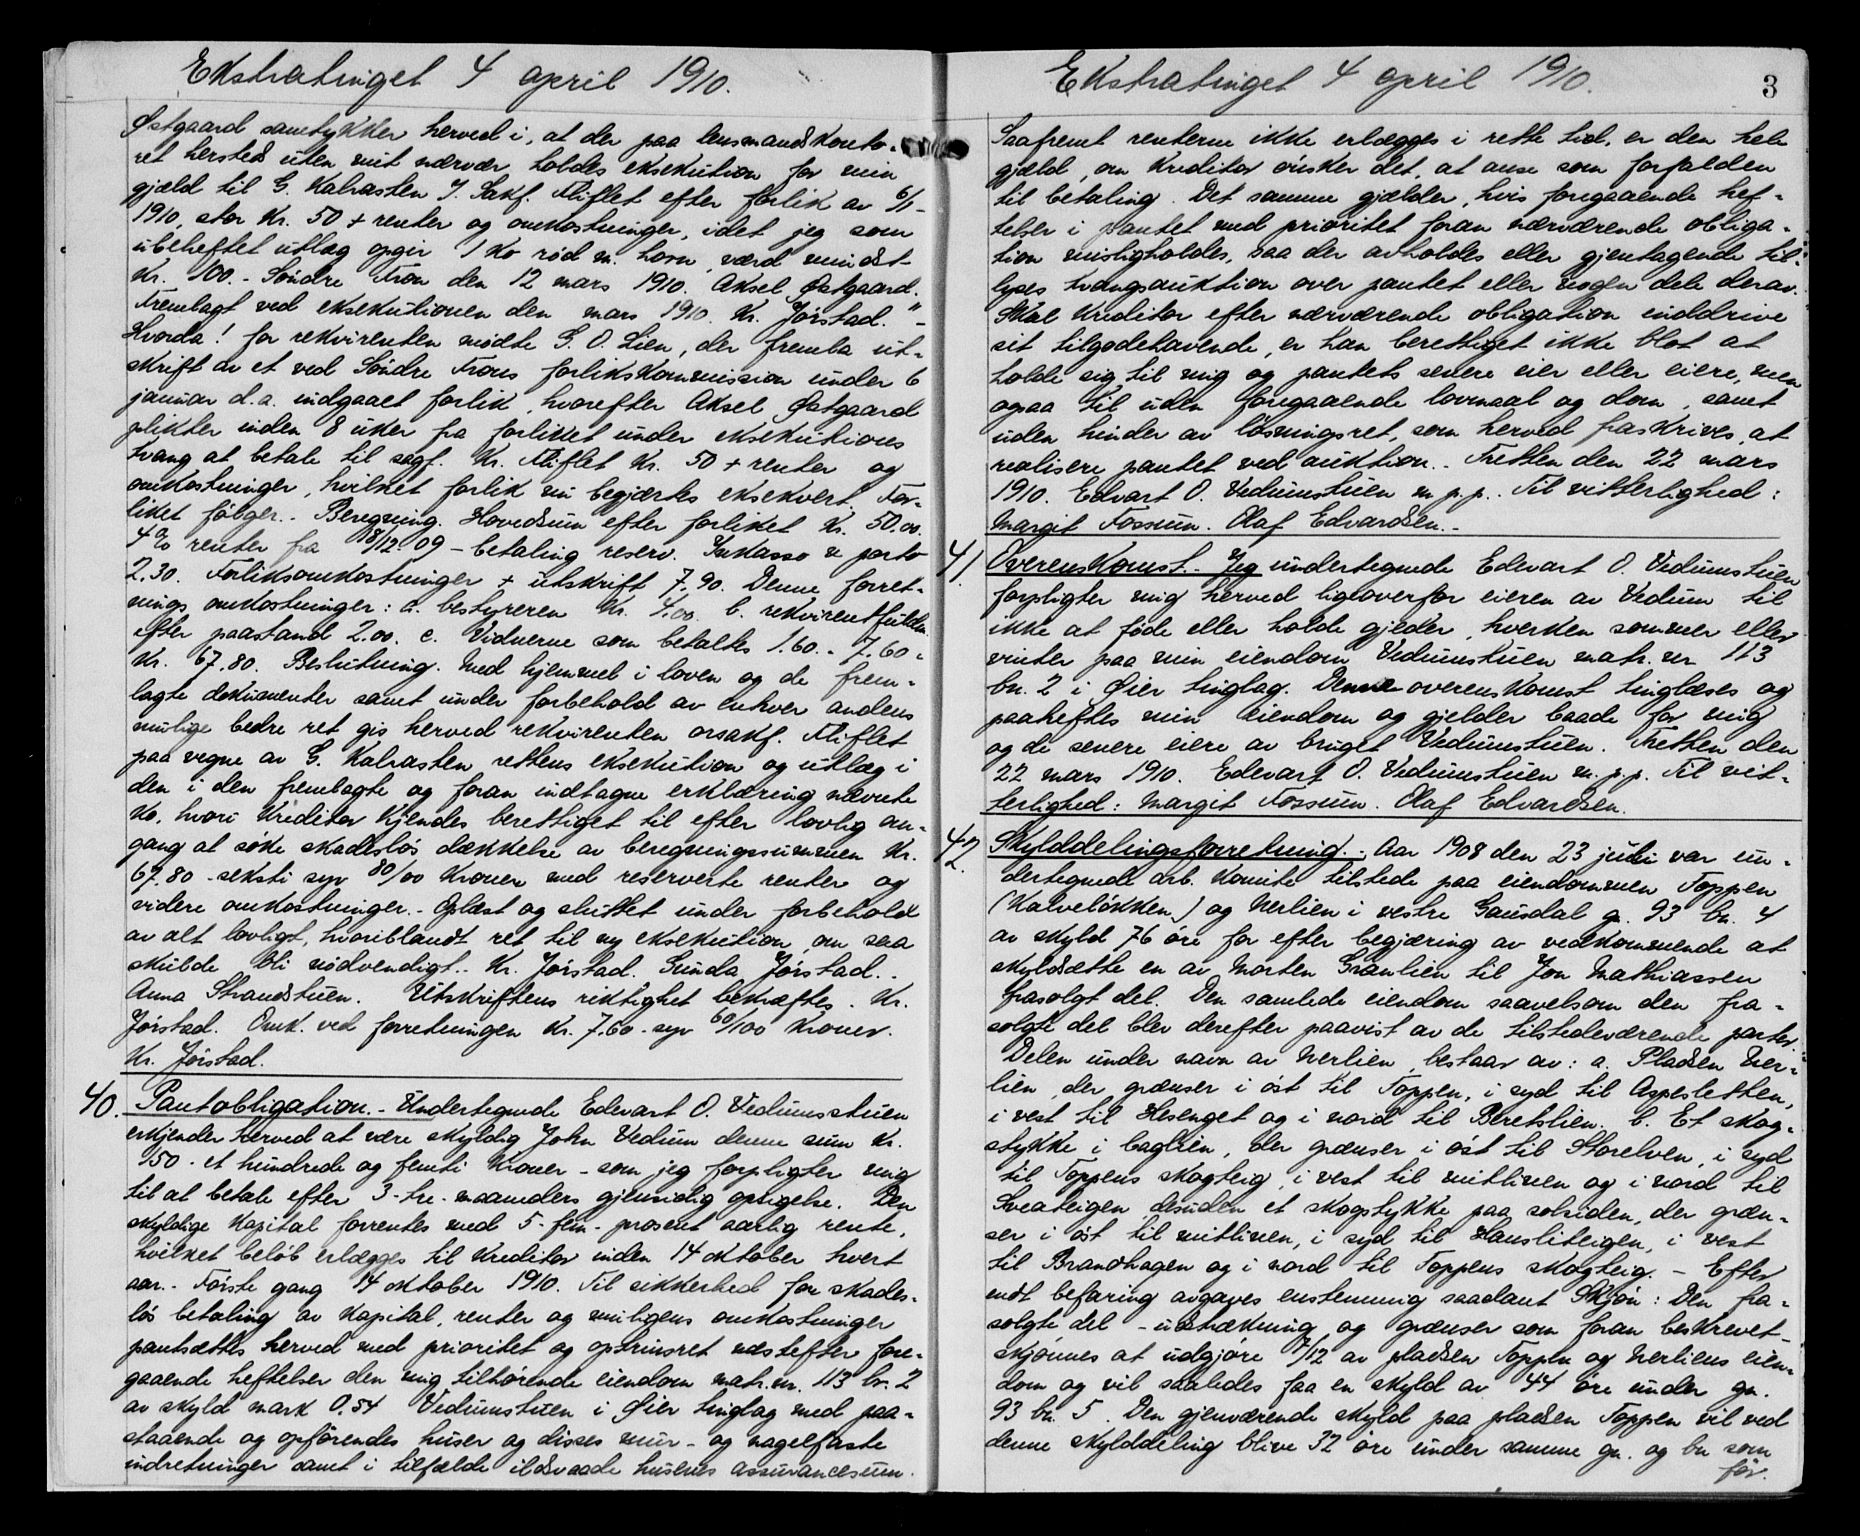 Ekstratinget 4 april 1910.
Østgaard samtykker herved i, at der paa lensmandskonto-
ret hersteds uten mit nærvær holdes eksekution for min
gjæld til G. Kalrasten J. Sakf. Fliflet efter forlik av 6/1-
1910, stor Kr. 50 + renter og omkostninger, idet jeg som
ubeheftet utlæg opgir 1 ko rød m. horn, værd mindst
Kr. 100.- Søndre Fron den 12 mars 1910. Aksel Østgaard."
Fremlagt ved eksekutionen den mars 1910. Kr. Jørstad." -
Hvorda! for rekvirenten mødte G. O. Lien, der fremla ut-
skrift av et ved Søndre Frons forlikskommission under 6
januar d.a. indgaaet forlik, hvorefter Aksel Østgaard
plikter inden 8 uker fra forliket under eksekutions
tvang at betale til sagf. Kr. Fliflet Kr. 50 + renter og
omkostninger, hvilket forlik nu begjærtes eksekvert. For-
liket følger.- Beregning. Hovedsum efter forliket Kr. 50.00.
4% renter fra 18/12 09 - betaling reserv. Inkasso & porto
2.30. Forliksomkostninger + utskrift 7.90. Denne forret-
nings omkostninger: a. bestyreren Kr. 4.00. b. rekvirentfuldm.
efter paastand 2.00. c. Vidnerne som betaltes 1.60.- 7.60 -
Kr. 67.80. Beslutning. Med hjemmel i loven og de frem-
lagte dokumenter samt under forbehold av enhver andens
mulige bedre ret gis herved rekvirenten orsakf. Fliflet
paa vegne av G. Kalrasten rettens eksekution og utlæg i
den i den fremlagte og foran indtagne erklæring nævnte
ko, hvori Kreditor kjendes berettiget til efter lovlig om-
gang at søke skadesløs dækkelse av beregningssummen Kr.
67.80 - seksti syv 80/00 Kroner med reserverte renter og
videre omkostninger.- Oplæst og sluttet under forbehold
av alt lovligt, hvoriblandt ret til ny eksekution, om saa
skulde bli nødvendigt.. Kr. Jørstad. Gunda Jørstad..
Anna Strandstuen. Utskriftens riktighet bekræftes. Kr.
Jørstad. Omk. ved forretningen Kr. 7.60 - syv 60/100 Kroner.
Kr. Jørstad.
40. Pantobligation. - Undertegnede Edevart O. Vedumsstuen
erkjender herved at være skyldig John Vedum denne sum Kr.
150 - et hundrede og femti Kroner - som jeg forpligter mig
til at betale efter 3 - tre - maaneders gjensidig opsigelse. Den
skyldige Kapital forrentes med 5 - fem - prosent aarlig rente,
hvilket beløb erlægges til Kreditor inden 14 oktober hvert
aar.- Første gang 14 oktober 1910. Til sikkerhed for skades-
løs betaling av Kapital, renter og muligens omkostninger
pantsættes herved med prioritet og optrinsret næstefter fore-
gaaende heftelser den mig tilhørende eiendom matr.nr. 113 br. 2
av skyld mark 0.54 Vedumstuen i Øier tinglag med paa-
staaende og opførendes huser og disses mur- og nagelfaste
indretninger samt i tilfælde ildsvaade husenes assurancesum.
Ekstratinget 4 april 1910.
3
Saafremt renterne ikke erlægges i rette tid, er den hele
gjæld, om Kreditor ønsker det, at anse som forfalden
til betaling. Det samme gjælder, hvis foregaaende hef-
telser i pantet med prioritet foran nærværende obliga-
tion misligholdes, saa der avholdes eller gjentagende til-
lyses tvangsauktion over pantet eller nogen dele derav.
Skal Kreditor efter nærværende obligation inddrive
sit tilgodehavende, er han berettiget ikke blot at
holde sig til mig og pantets senere eier eller eiere, men
ogsaa til uden foregaaende lovmaal og dom, samt
uden hinder av løsningsret, som herved fraskrives, at
realisere pantet ved auktion.. Tretten den 22 mars
1910. Edvart O. Vedumstuen m.p.p.. Til vitterlighed:
Margit Fossum. Olaf Edvardsen.-
41. Overenskomst.- Jeg undertegnede Edevart O. Vedumstuen
forpligter mig herved ligeoverfor eieren av Vedum til
ikke at føde eller holde gjeder, hverken sommer eller
vinter paa min eiendom Vedumstuen matr. nr 113
bn. 2 i Øier tinglag. Denne overenskomst tinglæses og
paaheftes min eiendom og gjelder baade for mig
og de senere eiere av bruget Vedumstuen. Tretten den
22 mars 1910. Edevart O. Vedumstuen m.p.p. Til vit-
terlighed: Margit Fossum. Olaf Edvardsen.
42. Skylddelingsforretning.- Aar 1908 den 23 juli var un-
dertegnede arb. komite tilstede paa eiendommen Toppen
(Kalveløkken) og Nerlien i vestre Gausdal gn. 93 bn. 4
av skyld 76 øre for efter begjæring av vedkommende at
skyldsætte en av Morten Gramlien til Jon Mathiassen
frasolgt del. Den samlede eiendom saavelsom den fra-
solgte del blev derefter paavist av de tilstedeværende parter
Delen under navn av Nerlien, bestaar av: a. Pladsen Ner-
lien, der grænser i øst til Toppen, i syd til Aspesletten,
i vest til Hesenget og i nord til Beretslien. b. Et skog-
stykke i baglien, der grænser i øst til Storelven, i syd
til Toppens skogteig, i vest til mitlinen og i nord til
Sveateigen, desuden et skogstykke paa solsiden, der græn-
ser i øst til mitlinen, i syd til Hansliteigen, i vest
til Brandhagen og i nord til Toppens skogteig. - Efter
endt befaring avgaves enstemmig saadant Skjøn: Den fra-
solgte del - utstrækning og grænser som foran beskrevet -
skjønnes at udgjøre 7/12 av pladsen Toppen og Nerliens eien-
dom og vil saaledes faa en skyld av 44 øre under gn.
93 bn. 5. Den gjenværende skyld paa pladsen Toppen vil ved
denne skylddeling blive 32 øre under samme gn. og bn som
før.